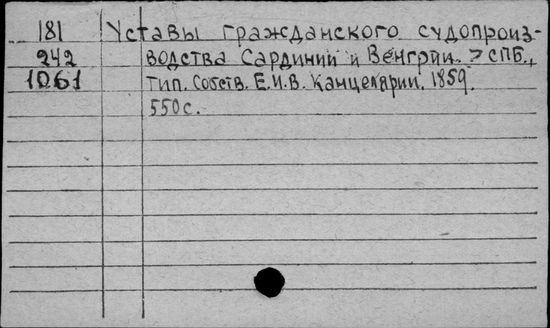 181 Уставы гражданского судопроиз-
242 водства Сардинии и Венгрии. > СПБ.,
1061 тип. Собств. Е.И.В. Канцелярии, 1859.
550с.